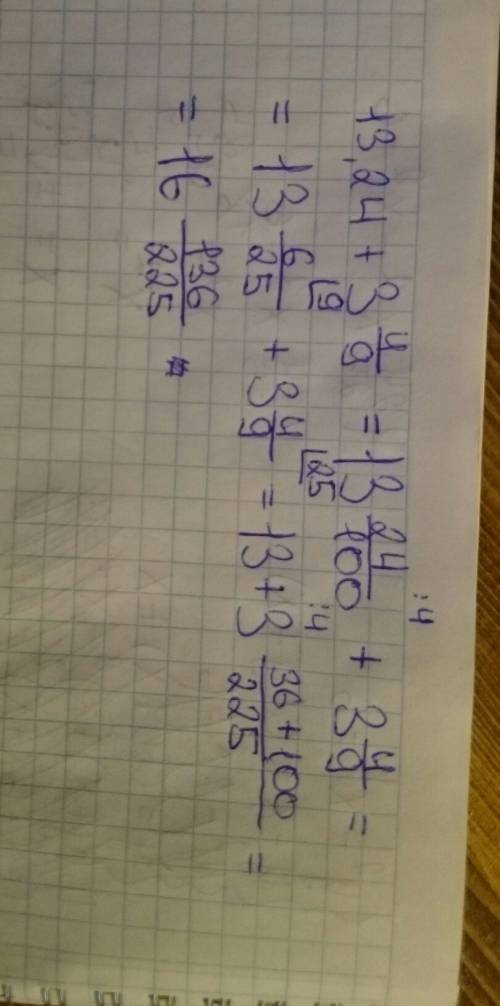 13,24 + 3 4/9 = 13 24/100 :4 + 3 4/9 =
= 13 6/25 ⌊9 + 3 4/9 ⌊25 = 13 + 3 :4 (36 + 100)/225 =
= 16 136/225